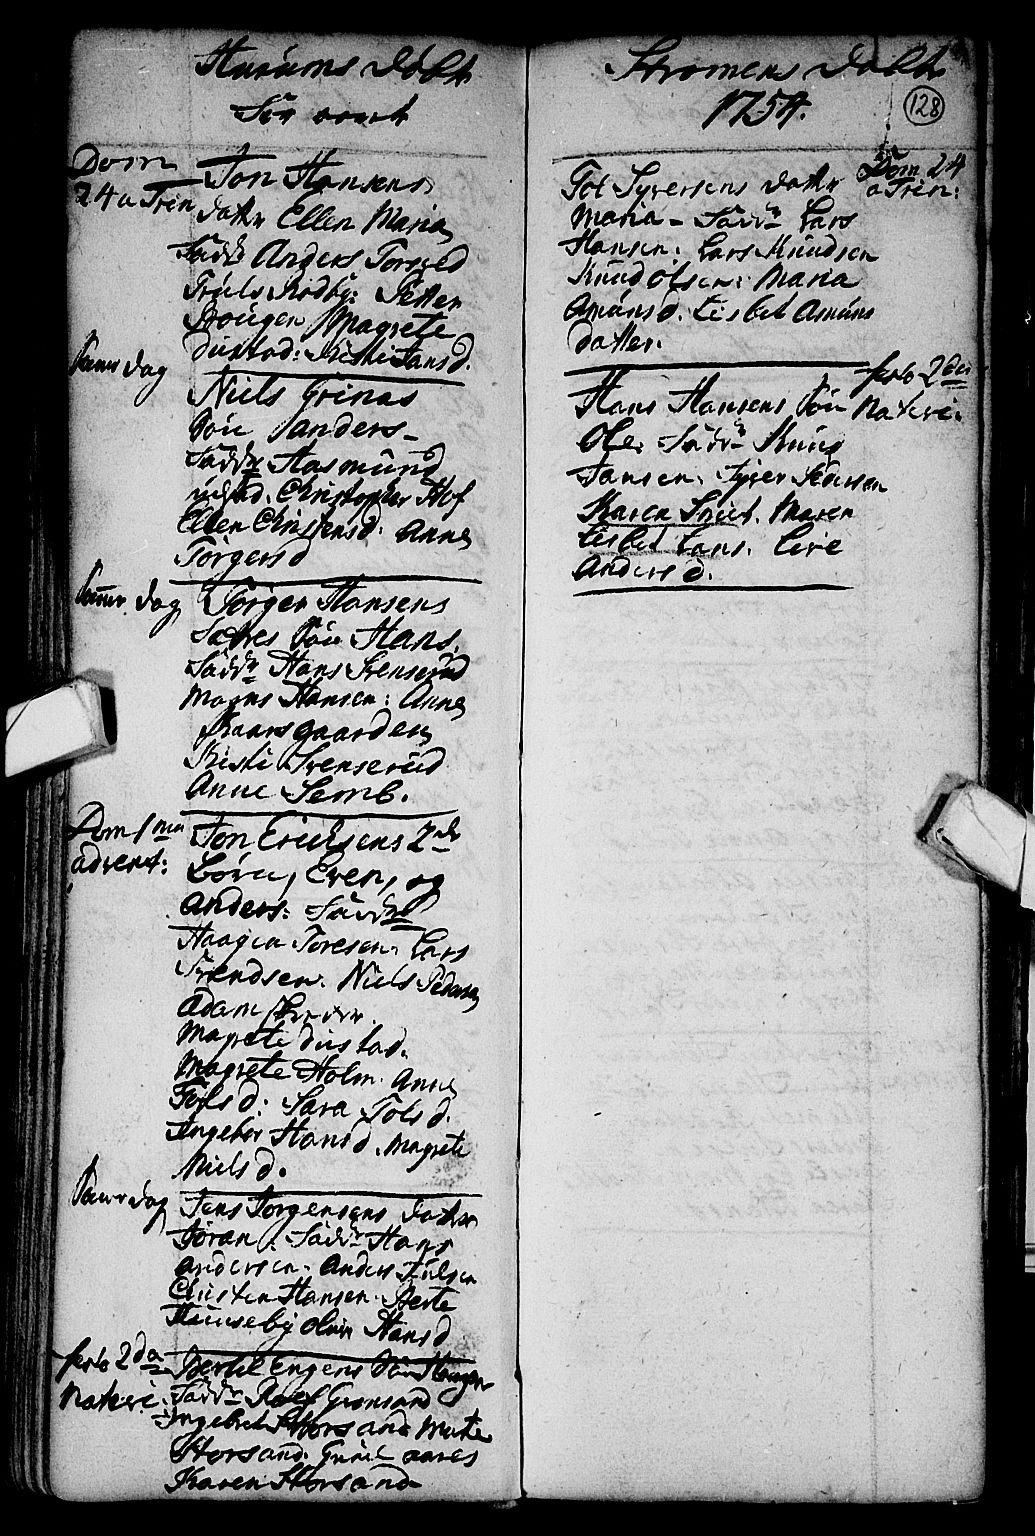 Hurums Døbt
Dom
24 a Trin
Jon Hansens
datter Ellen Maria
Fadd: Anders Torsrød
Truls Rødby: Petter
Hougen Magrete
Dustad: Kisti Jansd.
Samme dag
Niels Grinas
Søn Anders
Fadd: Aasmund
Christopher Hof
Ellen Christensd. Anne
Torgersd
Samme dag
Torger Hansens
Sætres Søn Hans.
Fadd: Hans Svenserud
Magns Hansen: Anne
Kaarsgaarden
Kisti Svenserud
Anne Semb.
Dom 1ma
advent:
Jon Erichsens 2de
Børn, Even, og
Anders: Fadd:
Haagen Toresen. Lars
Svendsen. Niels Pedersen
Adam
Magrete Dustad.
Magrete Holm. Anne
Tolsd: Sara Tolsd.
Ingebor Hansd. Magrete
Nielsd.
Samme dag
Jens Jørgensens datter
Jøran. Fadd: Hans
Andersen. Anders Julsen
Christen Hansen. Berte
Hunseby Hansd
festo 2da
Nativi.
Bertel Engens Søn Haagen
Fadd: Roef Grønsand
Ingebret Storsand Marte
Storsand. Guril aares
Karen Storsand
Strømens Døbt
1754.
128
Dom 24
a Trin:
Tol Syversens datter
Maria - Fadd: Lars
Hansen: Lars Knudsen
Knud Olsen: Maria
Amunsd. Lisbet Amuns
datter.
festo 2da
Nativi.
Hans Hansens Søn
Ole. Fadd: Knud
Jansen. Syver Pedersen
Karen Snul. Maren
Lisbet Lars. Live
Andersd.